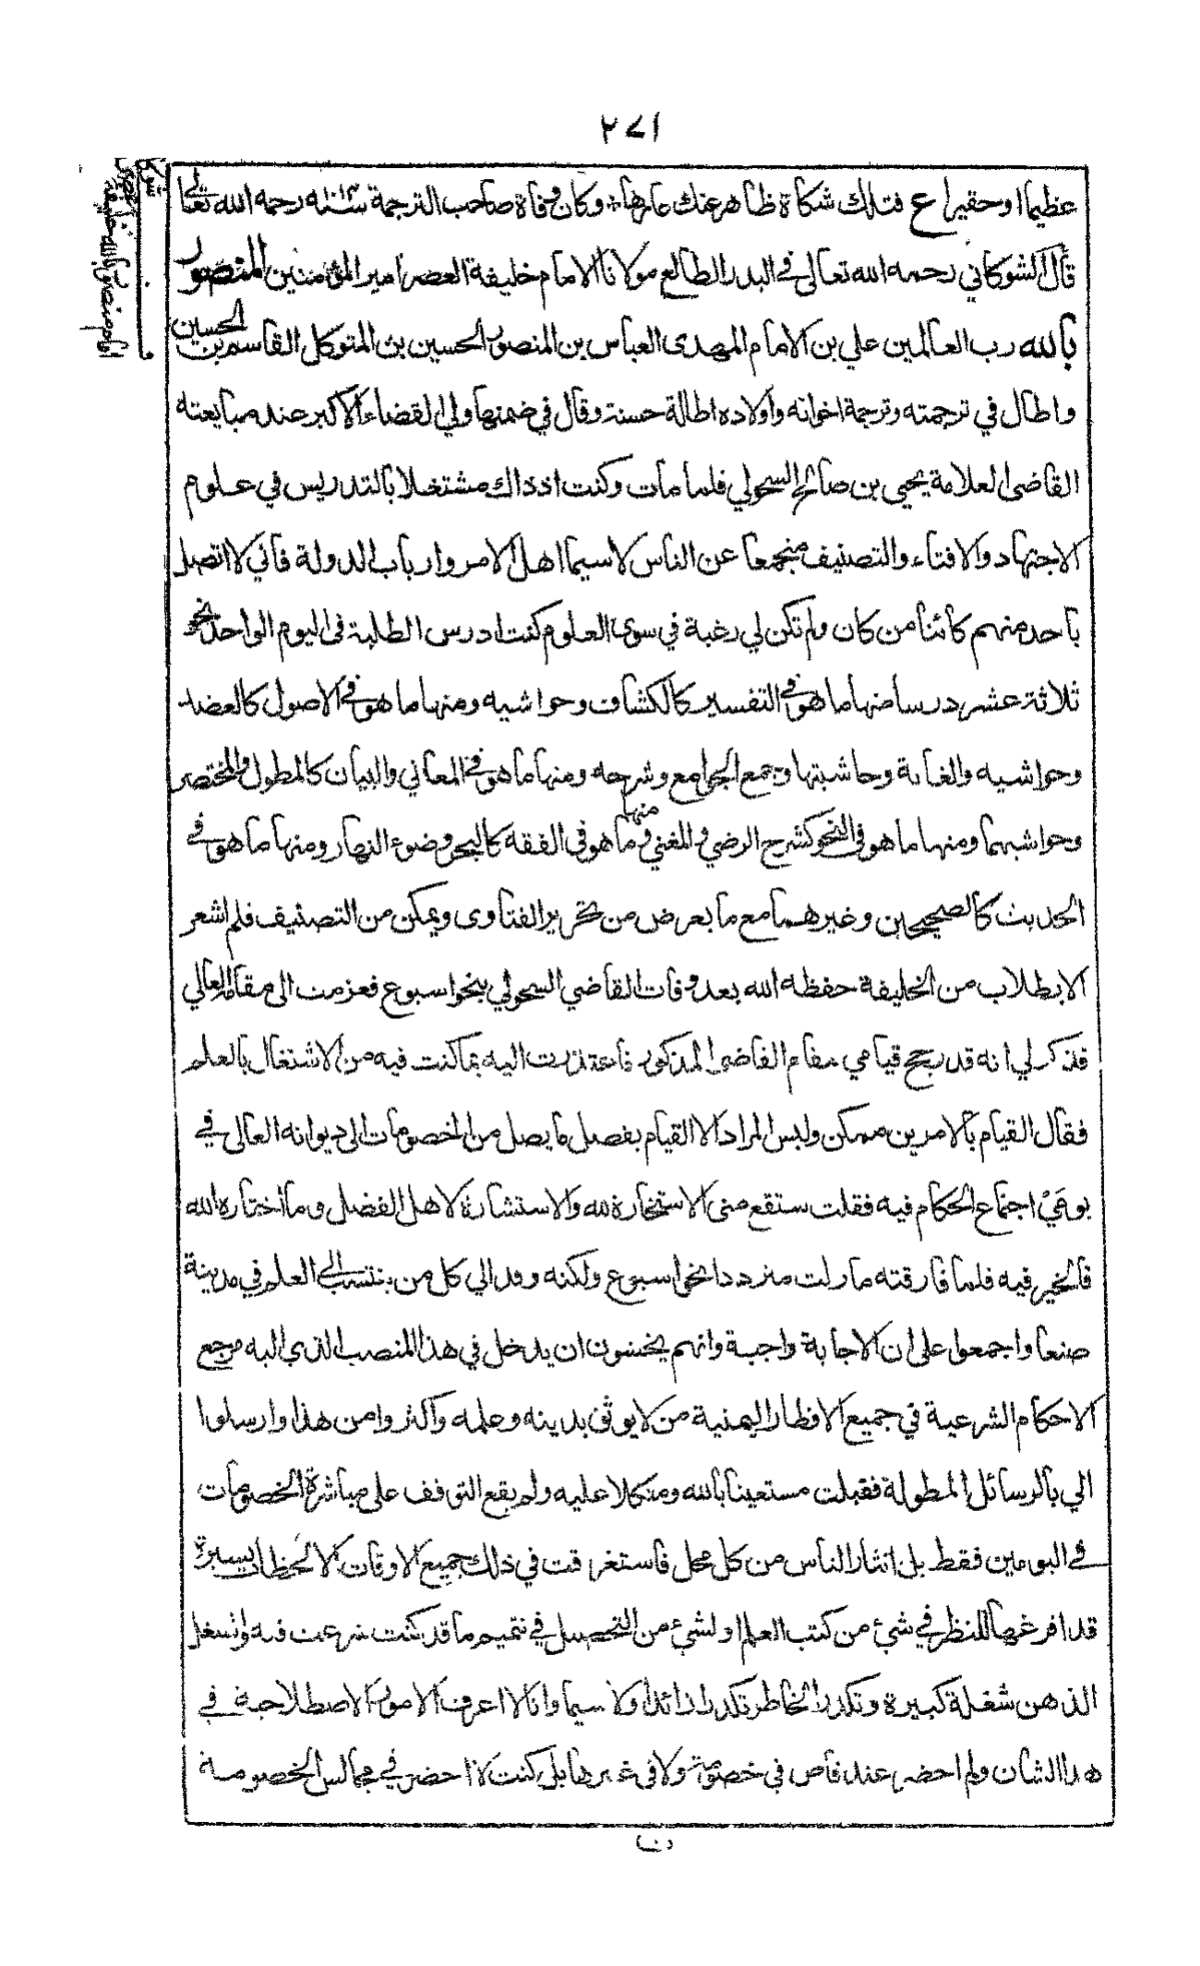 ٢٧١
عظيما او حقيرا ع فتلك شكاة ظاهر عنك عارها * وكان وفاة صاحب الترجمة سنة رحمه الله تعالى
قال الشوكاني رحمه الله تعالى في البدر الطالع مولانا الامام خليفة العصر امير المؤمنين المنصور
بالله رب العالمين علي بن الامام المهدى العباس بن المنصور الحسين بن المتوكل القاسم بن الحسين
واطال في ترجمته وترجمة اخوانه واولاده اطالة حسنة وقال في ضمنها ولي القضاء الاكبر عند مبايعته
القاضي العلامة يحيى بن صالح السحولي فلما مات وكنت اذ ذاك مشتغلا بالتدريس في علوم
الاجتهاد والافتاء والتصنيف منجمعا عن الناس لا سيما اهل الامر وارباب الدولة فاني لا اتصل
باحد منهم كائنا من كان ولم تكن لي رغبة في سوى العلوم كنت ادرس الطلبة في اليوم الواحد نحو
ثلاثة عشر درسا منها ما هو في التفسير كالكشاف وحواشيه ومنها ما هو في الاصول كالعضد
وحواشيه والغاية وحاشيتها وجمع الجوامع وشرحه ومنها ما هو في المعاني والبيان كالمطول والمختصر
وحواشيهما ومنها ما هو في النحو كشرح الرضي والمغني ومنها ما هو في الفقه كالبحر وضوء النهار ومنها ما هو في
الحديث كالصحيحين وغيرهما مع ما يعرض من تحرير الفتاوى ويمكن من التصنيف فلم اشعر
الا بطلاب من الخليفة حفظه الله بعد وفات القاضي السحولي بنحو اسبوع فعزمت الى مقامه العالي
فذكر لي انه قد رجح قيامي مقام القاضي المذكور فاعتذرت اليه بما كنت فيه من الاشتغال بالعلم
فقال القيام بالامرين ممكن وليس المراد الا القيام بفصل ما يصل من الخصومات الى ديوانه العالى في
يومَيْ اجتماع الحكام فيه فقلت ستقع منى الاستخارة لله والاستشارة لاهل الفضل وما اختاره الله
فالخير فيه فلما فارقته ما زلت مترددا نحو اسبوع ولكنه وفد الي كل من ينتسب الى العلم في مدينة
صنعا واجمعوا على ان الاجابة واجبة وانهم يخشون ان يدخل في هذا المنصب الذي اليه مرجع
الاحكام الشرعية في جميع الاقطار اليمنية من لا يوثق بدينه وعلمه واكثروا من هذا وارسلوا
الي بالرسائل المطولة فقبلت مستعينا بالله ومتكلا عليه ولم يقع التوقف على مباشرة الخصومات
في اليومين فقط بل انثار الناس من كل محل فاستغرقت في ذلك جميع الاوقات الا لحظات يسيرة
قد افرغها للنظر في شئ من كتب العلم او لشئ من التحصيل في تتميم ما قد كنت شرعت فيه واشتغل
الذهن شغلة كبيرة وتكدر الخاطر تكدرا زائدا ولا سيما وانا لا اعرف الامور الاصطلاحية في
هذا الشان ولم احضر عند قاض في خصومة ولا في غيرها بل كنت لا احضر في مجالس الخصومة